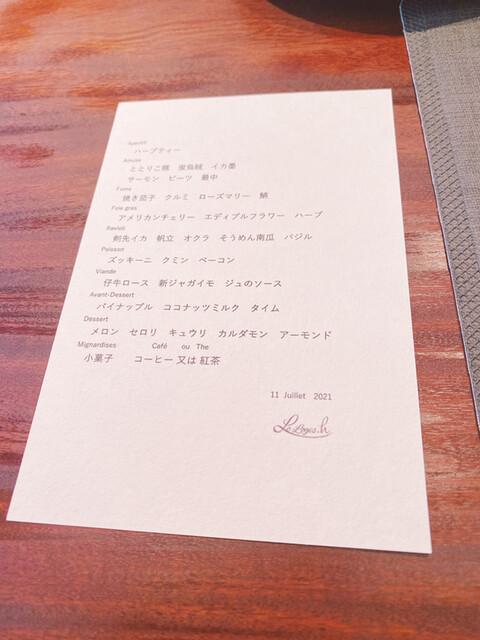 Apéritif
ハーブティー
Amuse
ととりこ豚 蛍烏賊 イカ墨
サーモン ビーツ 最中
Fumé
焼き茄子 クルミ ローズマリー 鯖
Foie gras
アメリカンチェリー エディブルフラワー ハーブ
Ravioli
剣先イカ 帆立 オクラ そうめん南瓜 バジル
Poisson
ズッキーニ クミン ベーコン
Viande
仔牛ロース 新ジャガイモ ジュのソース
Avant-Dessert
パイナップル ココナッツミルク タイム
Dessert
メロン セロリ キュウリ カルダモン アーモンド
Mignardises Café ou The
小菓子 コーヒー 又は 紅茶
11 Juillet 2021